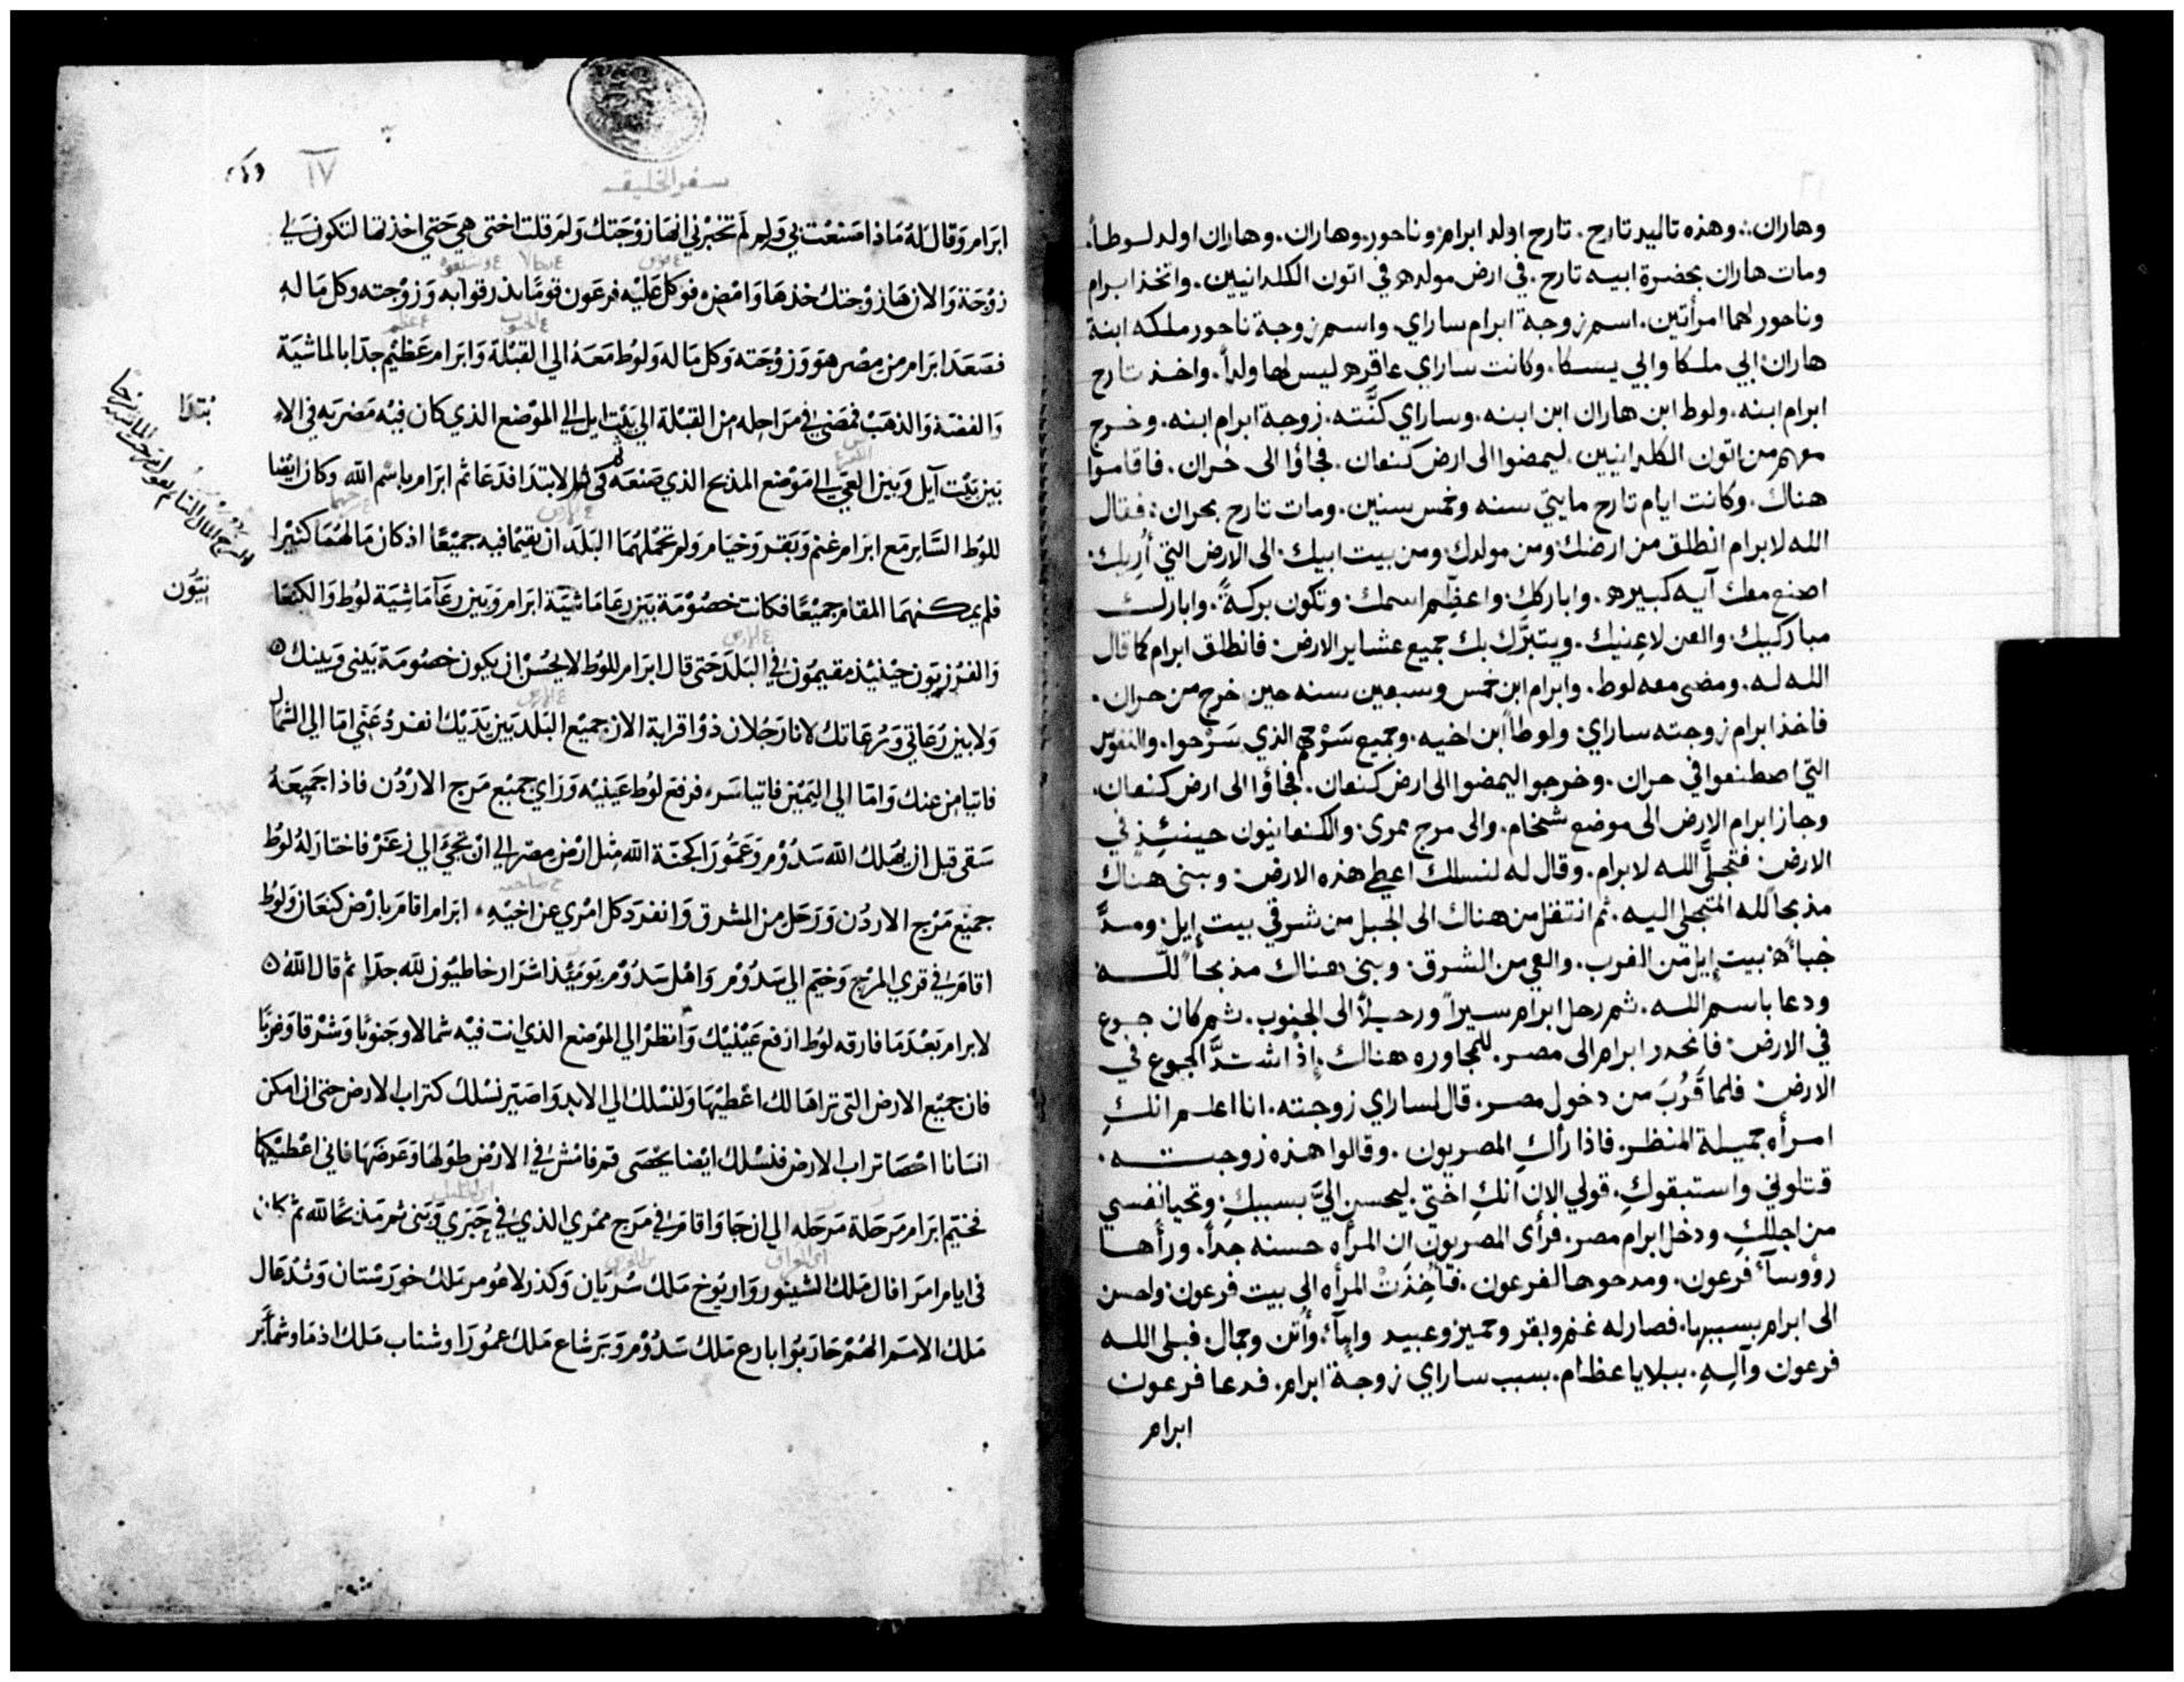 وهاران ∴ وهذه تاليد تارح. تارح اولد ابرام وناحور. وهاران. وهاران اولد لوطاً.
ومات هاران بحضرة ابيه تارح. في ارض مولده في اتون الكلدانيين. واتخذ ابرام
وناحور لهما امرأتين. اسم زوجة ابرام ساراي. واسم زوجة ناحور ملكه ابنة
هاران. ابي ملكا وابي يسكا. وكانت ساراي عاقره ليس لها ولداً. واخذ تارح
ابرام ابنه. ولوط ابن هاران ابن ابنه. وساراي كنَّته. زوجة ابرام ابنه. وخرج
معهم من اتون الكلدانيين. ليمضوا الى ارض كنعان. فجاؤا الى حران. فاقاموا
هناك. وكانت ايام تارح مايتي سنه وخمس سنين. ومات تارح بحران: فقال
الله لابرام انطلق من ارضك ومن مولدك ومن بيت ابيك. الى الارض التي أُريك.
اصنع معك آيه كبيره. واباركك واعظِّم اسمك. وتكون بركةً. وابارك
مباركيك. والعن لاعِنيك. ويتبرَّك بك جميع عشاير الارض. فانطلق ابرام كما قال
الله له. ومضى معه لوط. وابرام ابن خمس وسبعين سنه حين خرج من حران.
فاخذ ابرام زوجته ساراي. ولوطاً ابن اخيه. وجميع سَرْحهم الذي سَرْحوا. والنفوس
التي اصطنعوا في حران. وخرجوا ليمضوا الى ارض كنعان. فجاؤا الى ارض كنعان.
وجاز ابرام الارض الى موضع شخام. والى مرج ممرى. والكنعانيون حينئِذٍ في
الارض. فتجلَّى الله لابرام. وقال له لنسلك اعطي هذه الارض. وبنى هناك
مذبحاً لله المتجلى اليه. ثم انتقل من هناك الى الجبل من شرقي بيت إيل. ومدَّ
خباءه بيت إيل من الغرب. والعي من الشرق. وبنى هناك مذبحاً للَّه
ودعا باسم الله. ثم رحل ابرام سيراً ورحيلاً الى الجنوب. ثم كان جوع
في الارض. فانحدر ابرام الى مصر. للمجاوره هناك. إذْ اشتدَّ الجوع في
الارض. فلما قَرُبَ من دخول مصر. قال لساراي زوجته. انا اعلم انكِ
امرأه جميلة المنظر. فاذا رأكِ المصريون. وقالوا هذه زوجته.
قتلوني واستبقوكِ. قولي الان انكِ اختي. ليحسن اليَّ بسببكِ. وتحيا نفسي
من اجلكِ. ودخل ابرام مصر. فرأى المصريون ان المرأه حسنه جداً. ورأها
رؤوسآء فرعون. ومدحوها لفرعون. فأُخِذَتْ المرأه الى بيت فرعون. واحسن
الى ابرام بسببها. فصار له غنم وبقر وحمير وعبيد وإمآء. وأُتن وجمال. فبلى الله
فرعون وآلِهِ. ببلايا عظام. بسبب ساراي زوجة ابرام. فدعا فرعون
ابرام
سفر الخليقه
١٧
ابرام وقال له ماذا صنعت بي ولم لم تخبرني انها زوجتك ولم قلت اختي هي حتى اخذتها لتكون لي
زوجة والان ها زوجتك خذها وامض فوكل عليه فرعون قوما بذرقوا به وزوجته وكل ما له
فصعد ابرام من مصر هو وزوجته وكل ما له ولوط معه الي القبلة وابرام عظيم جدا بالماشية
والفضة والذهب فمضي في مراحله من القبلة الي بيت ايل الي الموضع الذي كان فيه مضربه في الاو
بين بيت آيل وبين العي الي موضع المذبح الذي صنعه في الابتدا فدعا ثم ابرام باسم الله وكان ايضا
للوط الساير مع ابرام غنم وبقر وخيام ولم تحملهما البلد ان يقيما فيه جميعا اذ كان مالهما كثيرا
فلم يمكنهما المقام جميعا فكانت خصومة بين رعا ماشية ابرام وبين رعآ ماشية لوط والكنعا
نيون
والفرزيون حينيذ مقيمون في البلد حتى قال ابرام للوط لا يحسن ان يكون خصومة بيني وبينك
ولا بين رعاتي ورعاتك لانا رجلان ذوا قرابة الان جميع البلد بين يديك انفرد عني اما الي الشمال
فاتيامن عنك واما الي اليمين فاتياسر فرفع لوط عينيه وراي جميع مرج الاردن فاذا جميعه
سقي قبل ان يهلك الله سدوم وعمورا كجنة الله مثل ارض مصر الي ان تجي الي زعر فاختار له لوط
جميع مرج الاردن ورحل من المشرق وانفرد كل امري عن اخيه ابرام اقام بارض كنعان ولوط
اقام في قري المرج وخيم الي سدوم واهل سدوم يوميذ اشرار خاطيون لله جدا ثم قال الله
لابرام بعد ما فارقه لوط ارفع عينيك وانظر الي الموضع الذي انت فيه شمالا وجنوبا وشرقا وغربا
فان جميع الارض التي تراها لك اعطيها ولنسلك الي الابد واصير نسلك كتراب الارض حتى ان امكن
انسانا احصا تراب الارض فنسلك ايضا يحصى قم فامش في الارض طولها وعرضها فاني اعطيكها
فخيم ابرام مرحلة مرحله الي ان جا واقام في مرج ممري الذي في حبري وبني ثم مذبحا لله ثم كان
في ايام امرافال ملك الشينور واريوخ ملك سريان وكذرلاعومر ملك خورستان وتدعال
ملك الامم انهم حاربوا بارع ملك سدوم وبرشاع ملك عمورا وشناب ملك اذما وشمابر